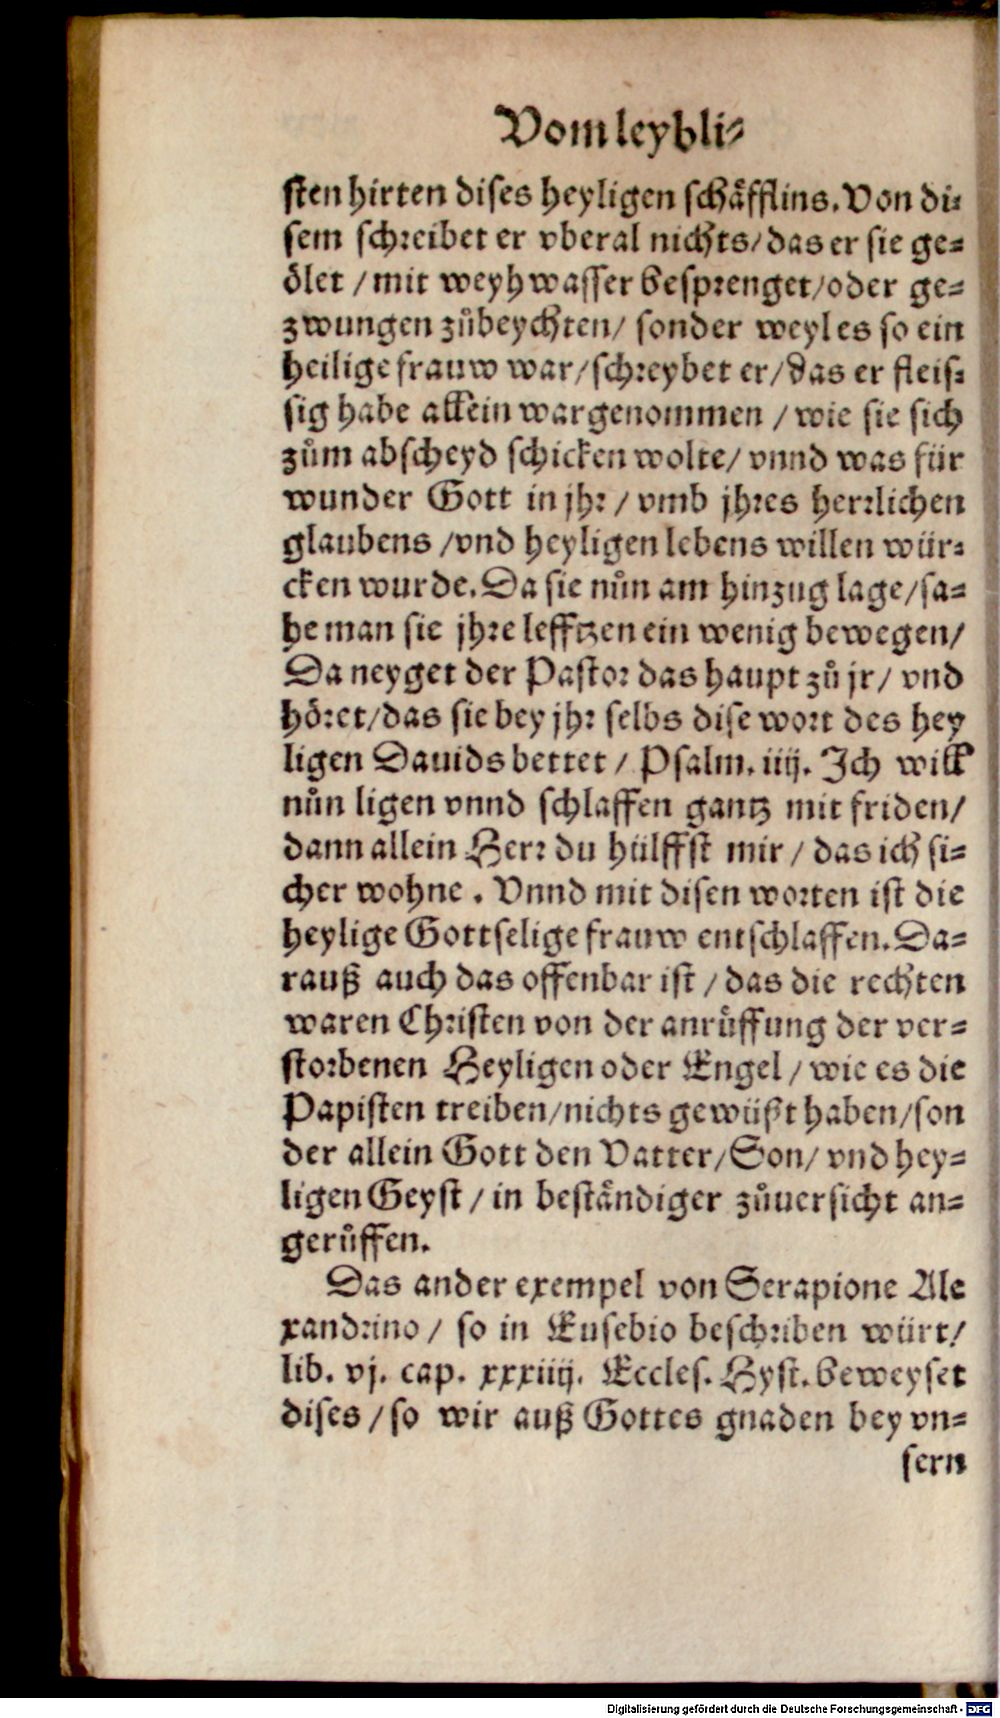 Vom leybli-
sten hirten dises heyligen schäfflins. Von di-
sem schreibet er vberal nichts/ das er sie ge-
ölet / mit weyhwasser besprenget/ oder ge-
zwungen zůbeychten/ sonder weyl es so ein
heilige frauw war/ schreybet er/ das er fleis-
sig habe allein wargenommen / wie sie sich
zům abscheyd schicken wolte/ vnnd was für
wunder Gott in jhr / vmb jhres herrlichen
glaubens /vnd heyligen lebens willen wür-
cken wurde. Da sie nůn am hinzug lage/ sa-
he man sie jhre lefftzen ein wenig bewegen/
Da neyget der Pastor das haupt zů jr/ vnd
höret/ das sie bey jhr selbs dise wort des hey
ligen Dauids bettet / Psalm. iiij. Ich will
nůn ligen vnnd schlaffen gantz mit friden/
dann allein Herr du hülffst mir / das ich si-
cher wohne . Vnnd mit disen worten ist die
heylige Gottselige frauw entschlaffen. Da-
rauß auch das offenbar ist / das die rechten
waren Christen von der anrůffung der ver-
storbenen Heyligen oder Engel / wie es die
Papisten treiben/ nichts gewüßt haben/ son
der allein Gott den Vatter/ Son/ vnd hey-
ligen Geyst / in beständiger zůuersicht an-
gerůffen.
Das ander exempel von Serapione Ale
xandrino / so in Eusebio beschriben würt/
lib. vj. cap. xxxiiij. Eccles. Hyst. beweyset
dises / so wir auß Gottes gnaden bey vn-
sern
Digitalisierung gefördert durch die Deutsche Forschungsgemeinschaft - DFG